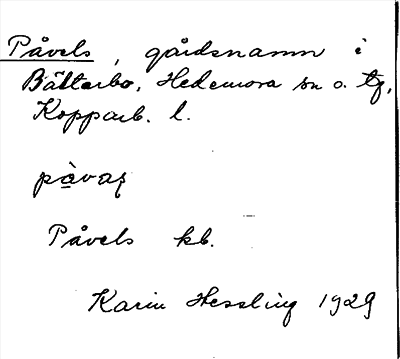 Påvels, gårdsnamn i
Bältarbo, Hedemora sn o. tg,
Kopparb. l.
påvas
Påvels kb.
Karin Hessling 1929